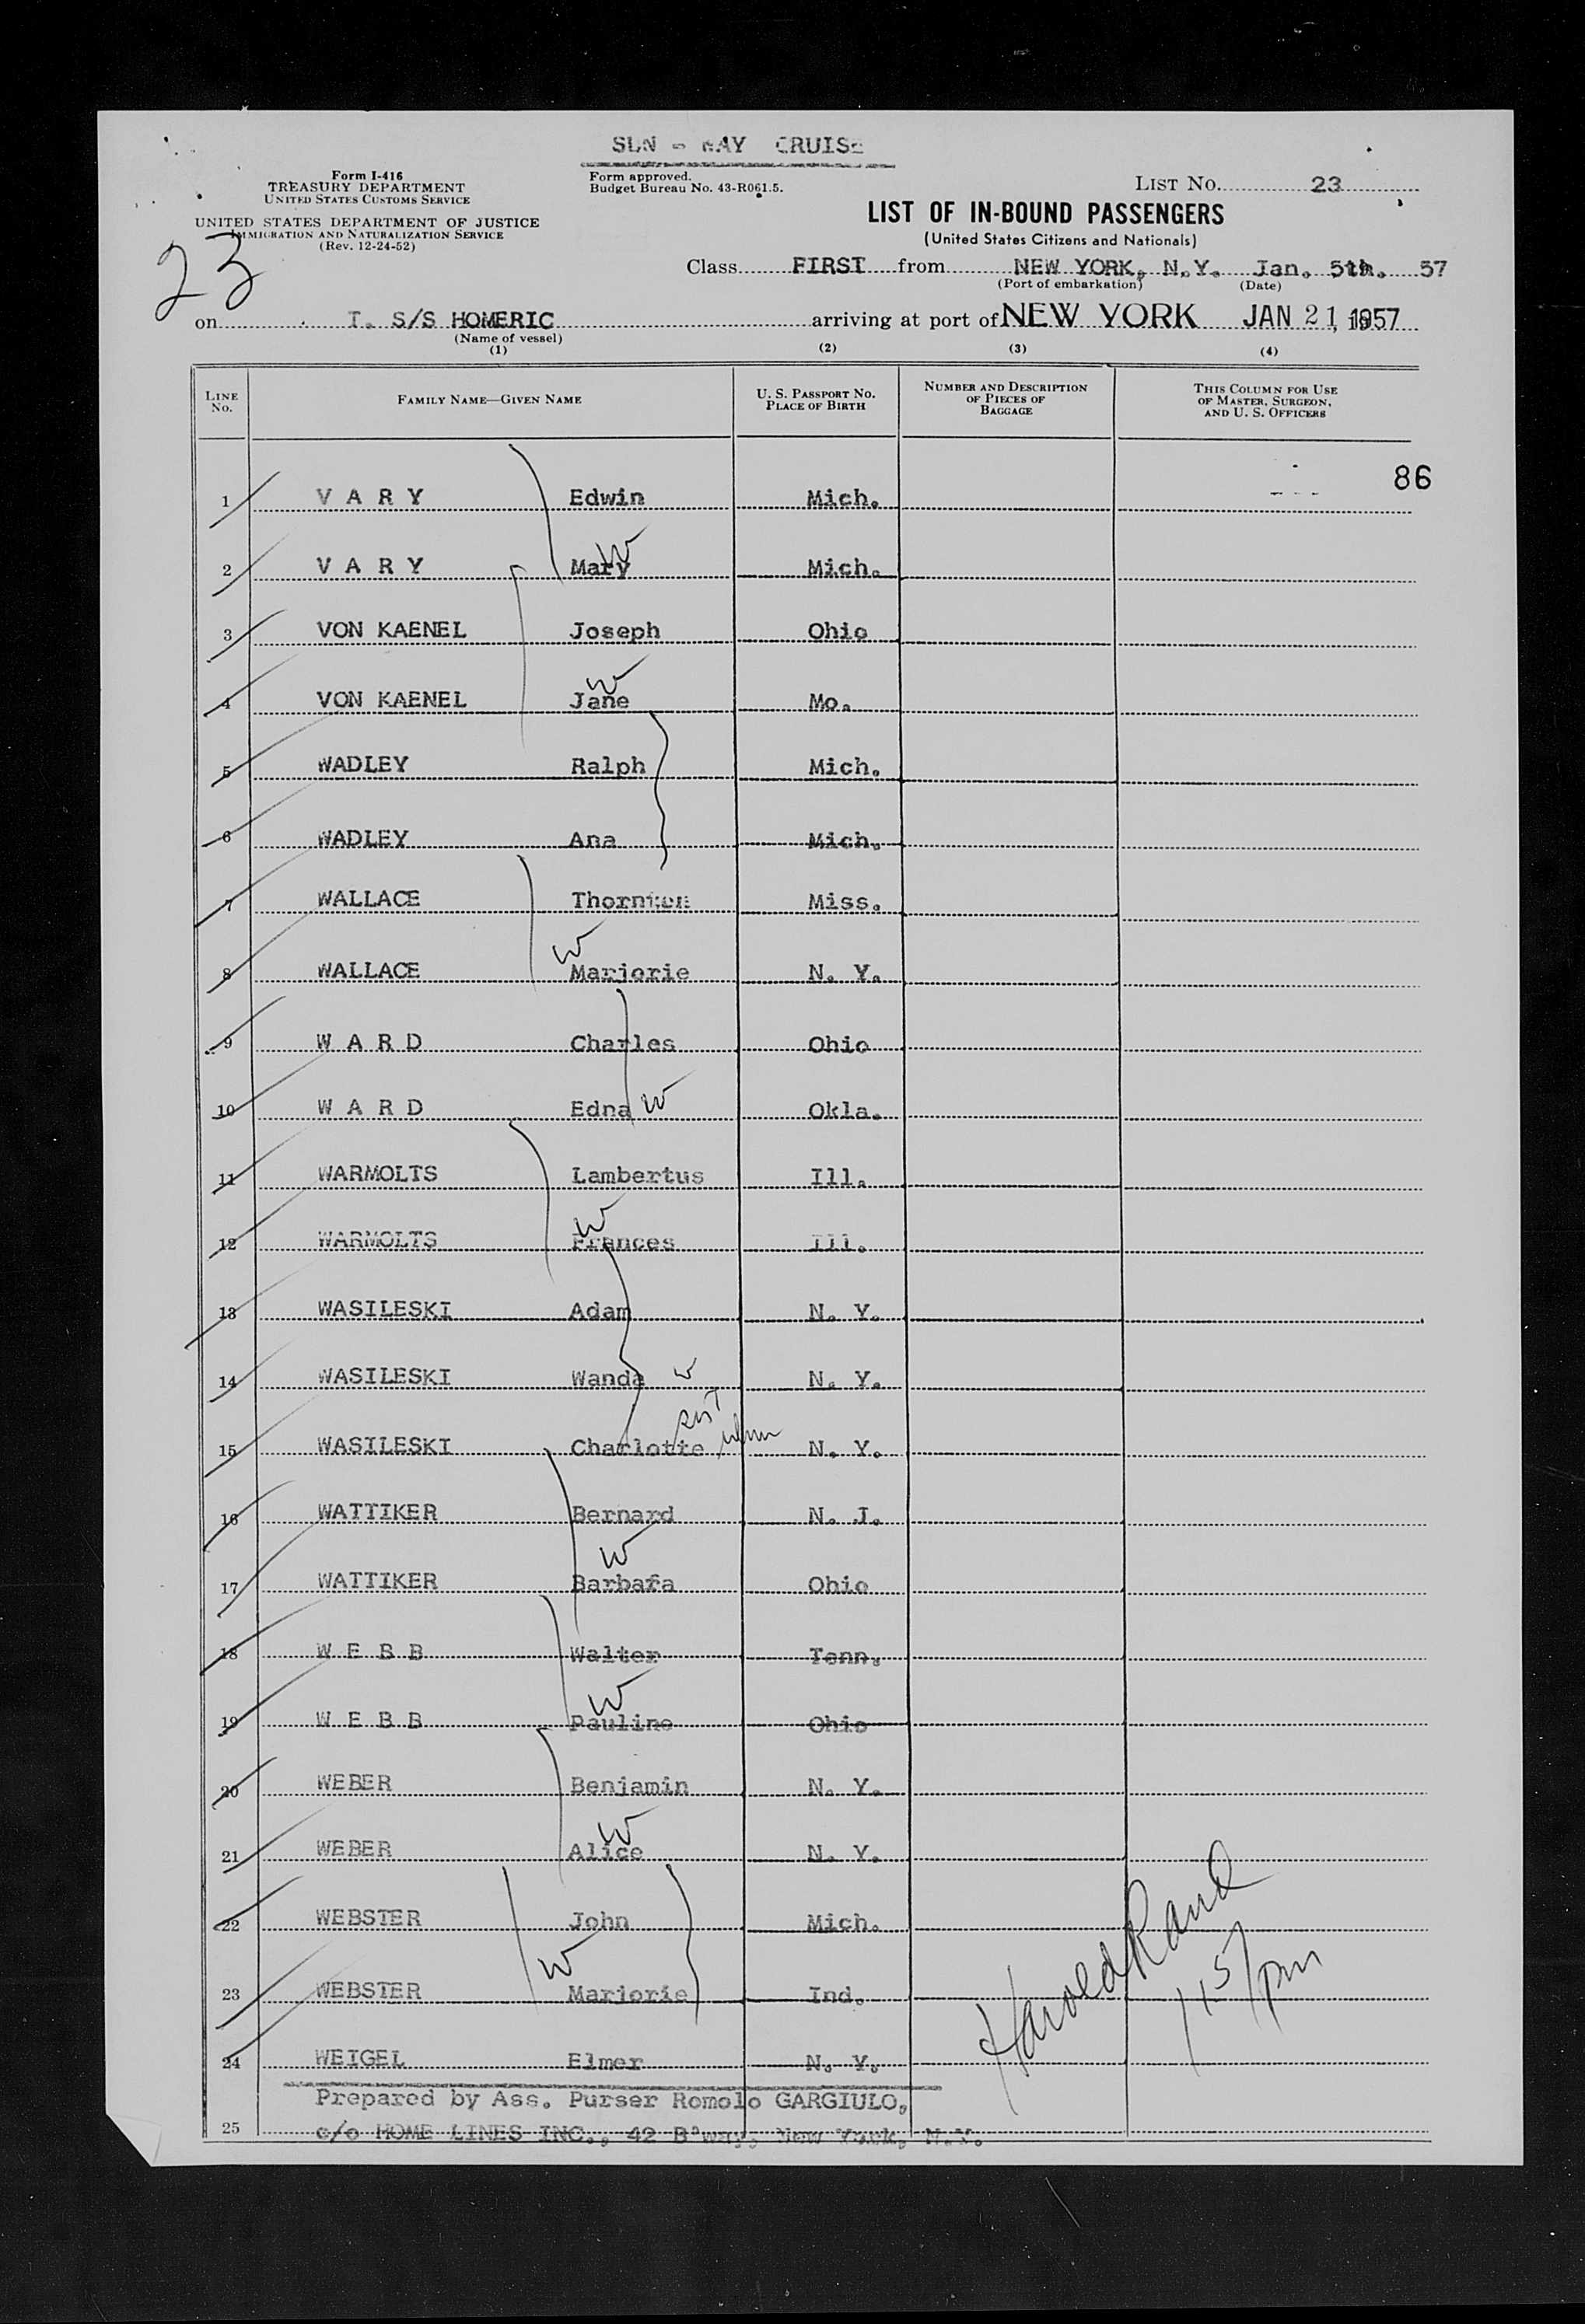 SUN - WAY CRUISE
Form I-416
TREASURY DEPARTMENT
UNITED STATES CUSTOMS SERVICE
UNITED STATES DEPARTMENT OF JUSTICE
IMMIGRATION AND NATURALIZATION SERVICE
(Rev. 12-24-52)
Form approved.
Budget Bureau No. 43-R061.5.
LIST NO. 23
LIST OF IN-BOUND PASSENGERS
(United States Citizens and Nationals)
23
Class FIRST from NEW YORK, N.Y. Jan. 5th. 57
(Port of embarkation) (Date)
on T. S/S HOMERIC arriving at port of NEW YORK JAN 21, 1957
(Name of vessel)
(1) (2) (3) (4)
LINE NO. FAMILY NAME—GIVEN NAME U. S. PASSPORT NO. PLACE OF BIRTH NUMBER AND DESCRIPTION OF PIECES OF BAGGAGE THIS COLUMN FOR USE OF MASTER, SURGEON, AND U. S. OFFICERS
86
1 V A R Y Edwin Mich.
2 V A R Y Mary W Mich.
3 VON KAENEL Joseph Ohio
4 VON KAENEL Jane W Mo.
5 WADLEY Ralph Mich.
6 WADLEY Ana Mich.
7 WALLACE Thornton Miss.
8 WALLACE W Marjorie N. Y.
9 W A R D Charles Ohio
10 W A R D Edna W Okla.
11 WARMOLTS Lambertus Ill.
12 WARMOLTS W Frances Ill.
13 WASILESKI Adam N. Y.
14 WASILESKI Wanda W N. Y.
15 WASILESKI Charlotte N. Y.
16 WATTIKER Bernard N. J.
17 WATTIKER W Barbara Ohio
18 W E B B Walter Tenn.
19 W E B B W Pauline Ohio
20 WEBER Benjamin N. Y.
21 WEBER W Alice N. Y.
22 WEBSTER John Mich.
23 WEBSTER W Marjorie Ind.
24 WEIGEL Elmer N. Y.
Harold Rand
115/pm
Prepared by Ass. Purser Romolo GARGIULO,
25 c/o HOME LINES INC., 42 B'way, New York, N.Y.